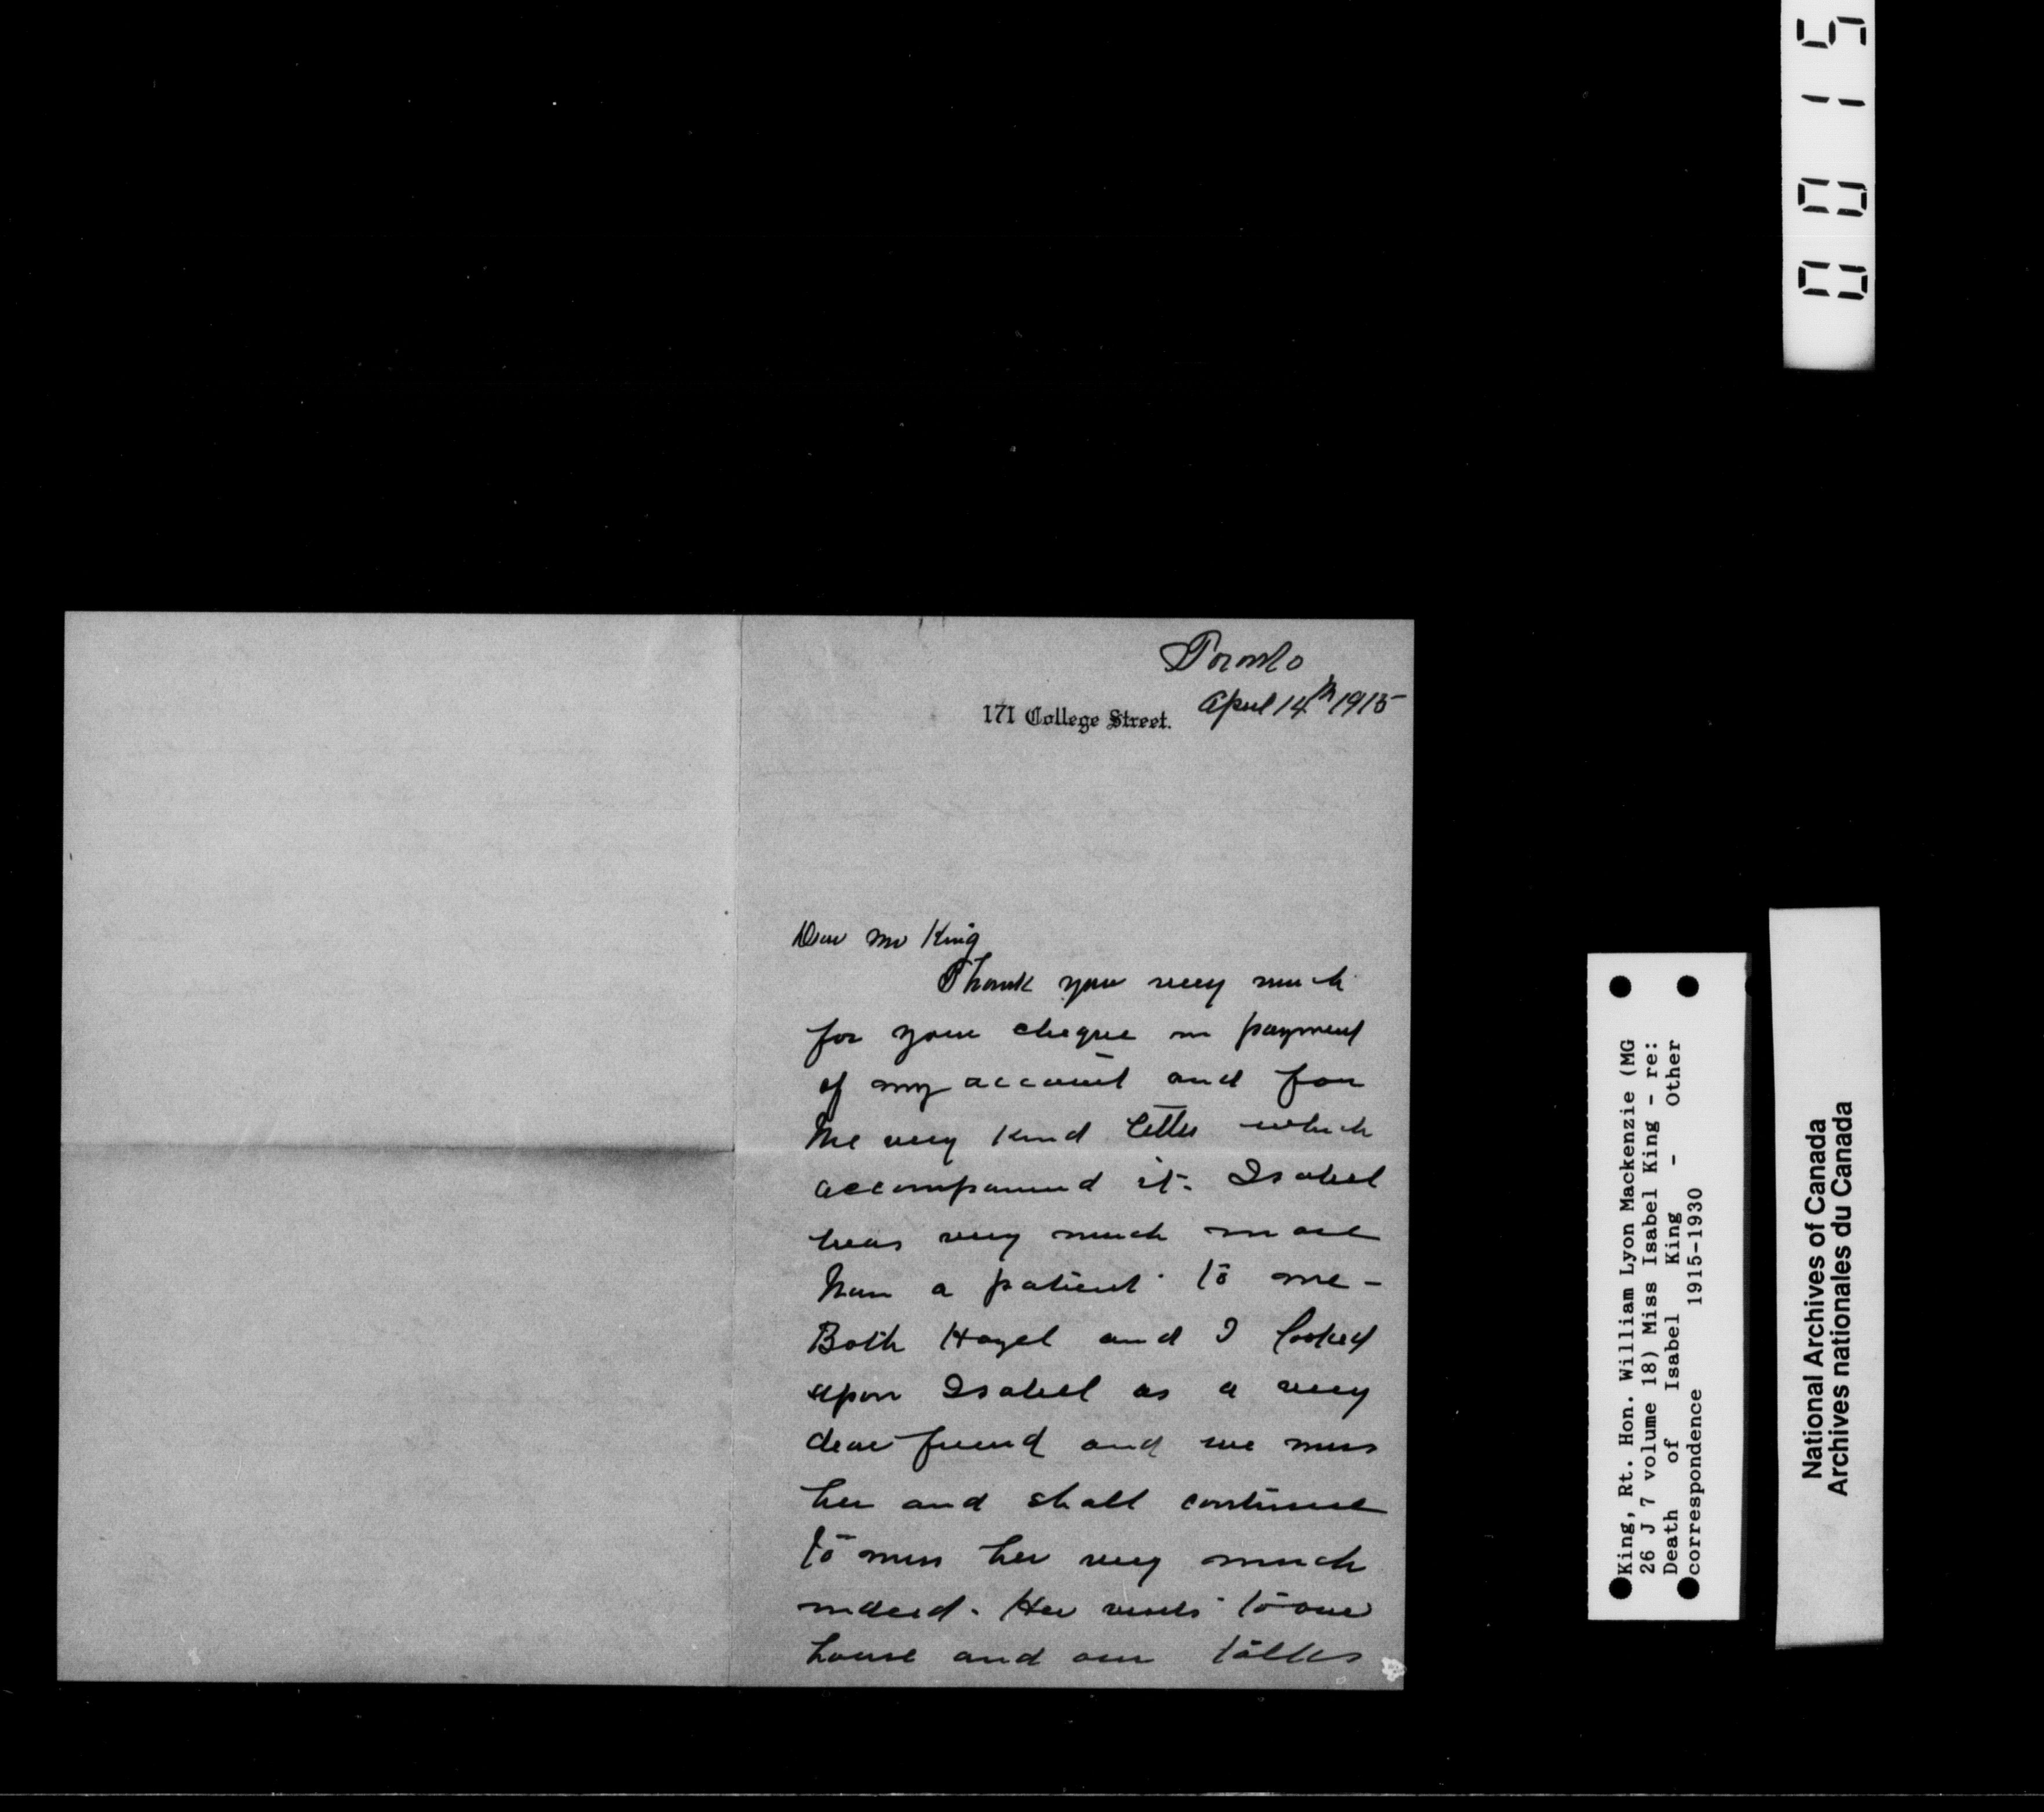 Toronto
171 College Street. April 14th 1915
Dear Mr King
Thank you very much
for your cheque in payment
of my account and for
the very kind letter which
accompanied it. Isabel
was very much more
than a patient to me -
Both Hazel and I looked
upon Isabel as a very
dear friend and we miss
her and shall continue
to miss her very much
indeed. Her visits to our
house and our talks
King, Rt. Hon. William Lyon Mackenzie (MG
26 J 7 volume 18) Miss Isabel King - re:
Death of Isabel King - Other
correspondence 1915-1930
National Archives of Canada
Archives nationales du Canada
0015